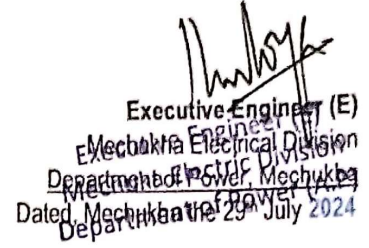 Executive Engineer (E)
Mechukha Electrical Division
Department of Power, Mechukha
Dated, Mechukha the 29th July 2024
Executive Engineer
Mechukha Electric Division
Department of Power (A.P)